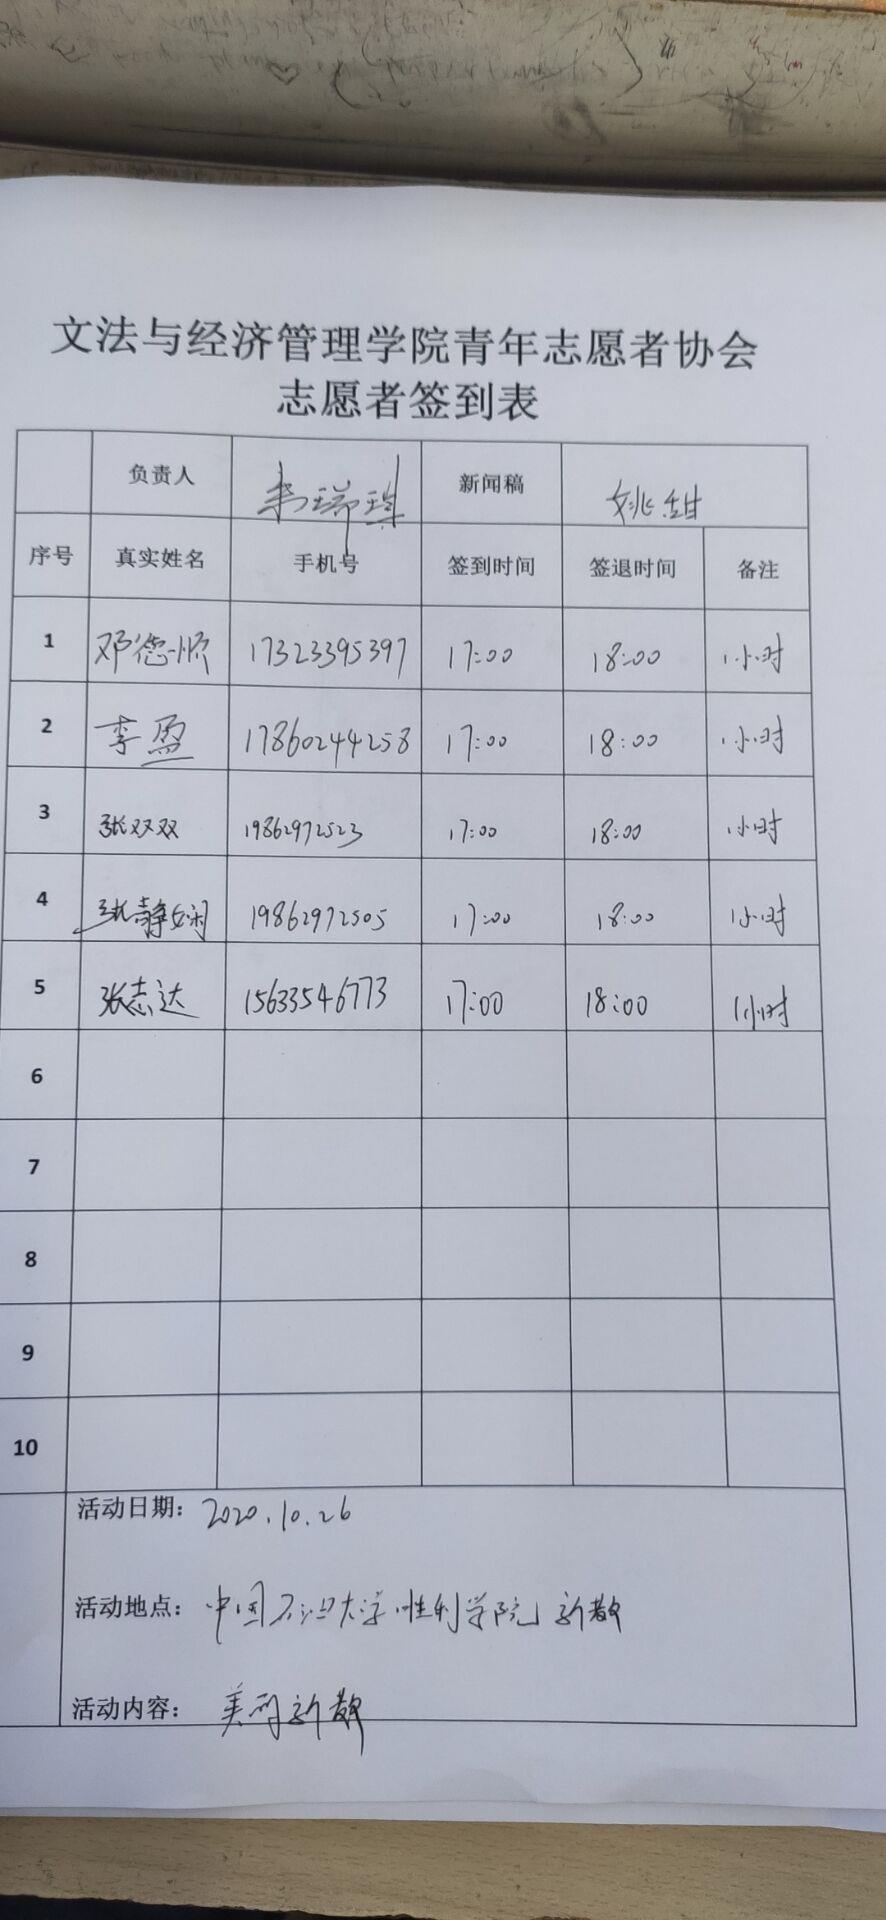 文法与经济管理学院青年志愿者协会
志愿者签到表
负责人 韦瑞琪 新闻稿 姚甜
序号 真实姓名 手机号 签到时间 签退时间 备注
1 邓德顺 17323395397 17:00 18:00 1小时
2 李盈 17860244258 17:00 18:00 1小时
3 张双双 19862972523 17:00 18:00 1小时
4 张静娴 19862972505 17:00 18:00 1小时
5 张志达 15633546773 17:00 18:00 1小时
6
7
8
9
10
活动日期: 2020.10.26
活动地点: 中国石油大学胜利学院新教
活动内容: 美丽新教